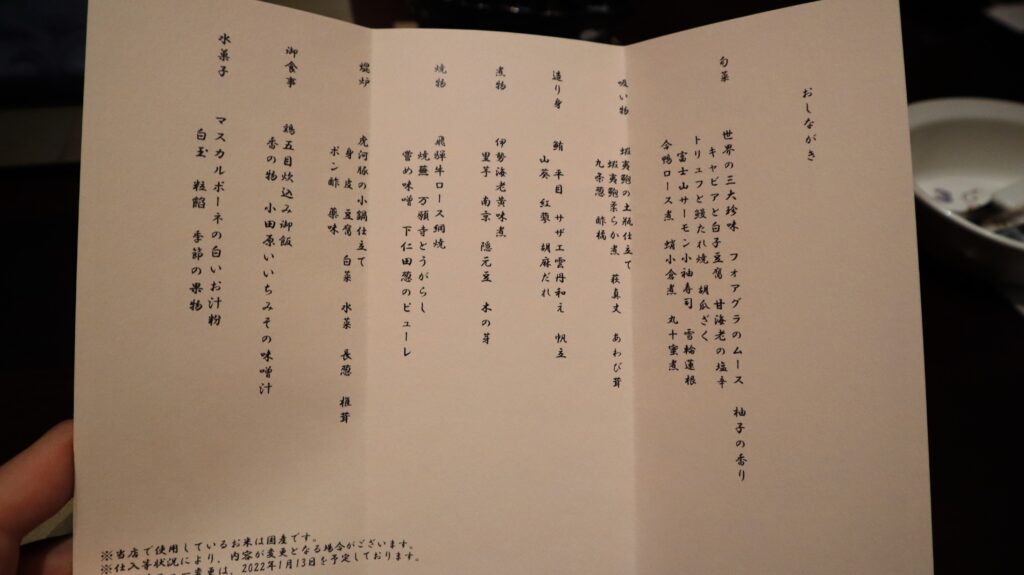 おしながき
旬菜
世界の三大珍味 フォアグラのムース 柚子の香り
キャビアと白子豆腐 甘海老の塩辛
トリュフと鰻たれ焼 胡瓜ざく
富士山サーモン小袖寿司 雪輪蓮根
合鴨ロース煮 蛸小倉煮 丸十蜜煮
吸い物
蝦夷鮑の土瓶仕立て
蝦夷鮑柔らか煮 萩真丈 あわび茸
九条葱 酢橘
造り身
鮪 平目 サザエ雲丹和え 帆立
山葵 紅蓼 胡麻だれ
煮物
伊勢海老黄味煮
里芋 南京 隠元豆 木の芽
焼物
飛騨牛ロース網焼
焼蕪 万願寺とうがらし
嘗め味噌 下仁田葱のピューレ
焜炉
虎河豚の小鍋仕立て
身 皮 豆腐 白菜 水菜 長葱 椎茸
ポン酢 薬味
御食事
鶏五目炊込み御飯
香の物 小田原いいちみその味噌汁
水菓子
マスカルポーネの白いお汁粉
白玉 粒餡 季節の果物
※当店で使用しているお米は国産です。
※仕入等状況により、内容が変更となる場合がございます。
変更は、2022年1月13日を予定しております。